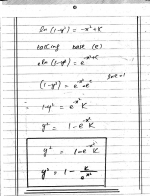 ln (1-y²) = -x²+K
taking base (e)
e^ln(1-y²) = e^-x²+K
(1-y²) = e^-x² e^K
1-y² = e^-x² K
y² = 1 - e^-x² K
y² = 1 - e^-x² K
y² = 1 - K/e^x²